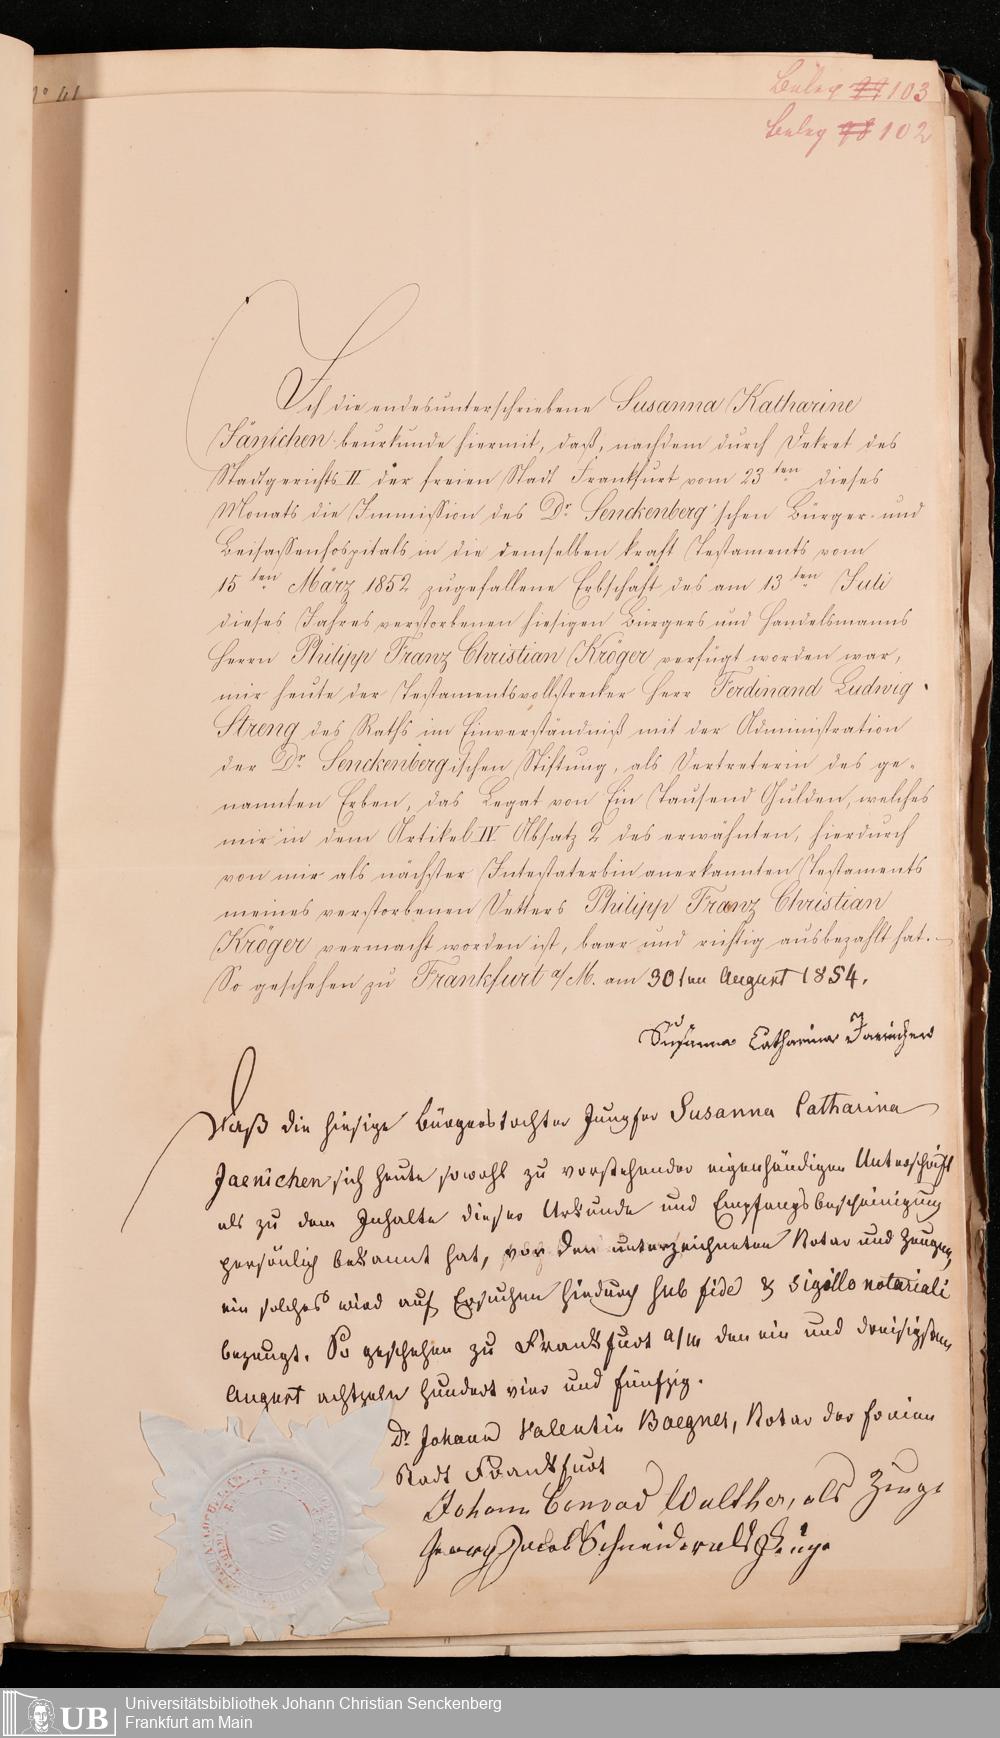 Beleg 103
Beleg 102
Ich die endesunterschriebene Susanna Katharine
Jänichen beurkunde hiermit, daß, nachdem durch Dekret des
Stadtgerichts II der freien Stadt Frankfurt vom 23ten dieses
Monats die Immission des Dr. Senckenberg'schen Bürger- und
Beisassenhospitals in die demselben kraft Testaments vom
15ten März 1852 zugefallene Erbschaft des am 13ten Juli
dieses Jahres verstorbenen hiesigen Bürgers und Handelsmanns
Herrn Philipp Franz Christian Kröger verfügt worden war,
mir heute der Testamentsvollstrecker Herr Ferdinand Ludwig
Streng des Raths im Einverständniß mit der Administration
der Dr. Senckenbergischen Stiftung, als Vertreterin des ge-
nannten Erben, das Legat von Ein Tausend Gulden, welches
mir in dem Artikel IV Absatz 2 des erwähnten, hierdurch
von mir als nächster Intestaterbin anerkannten Testaments
meines verstorbenen Vetters Philipp Franz Christian
Kröger vermacht worden ist, baar und richtig ausbezahlt hat.
So geschehen zu Frankfurt a/M. am 30ten August 1854.
Susanna Catharina Jaenichen
Daß die hiesige Bürgerstochter Jungfer Susanna Catharina
Jaenichen sich heute sowohl zu vorstehender eigenhändigen Unterschrift
als zu dem Inhalte dieser Urkunde und Empfangsbescheinigung
persönlich bekannt hat, vor den unterzeichneten Notar und Zeugen,
ein solches wird auf Ersuchen hiedurch sub fide & sigillo notariali
bezeugt. So geschehen zu Frankfurt a/m den ein und dreisigsten
August achtzehn hundert vier und fünfzig.
Dr. Johann Valentin Baegner, Notar der freien
Stadt Frankfurt
Johann Conrad Walther, als Zeuge
Georg Jacob Schneider als Zeuge
UB
Universitätsbibliothek Johann Christian Senckenberg
Frankfurt am Main